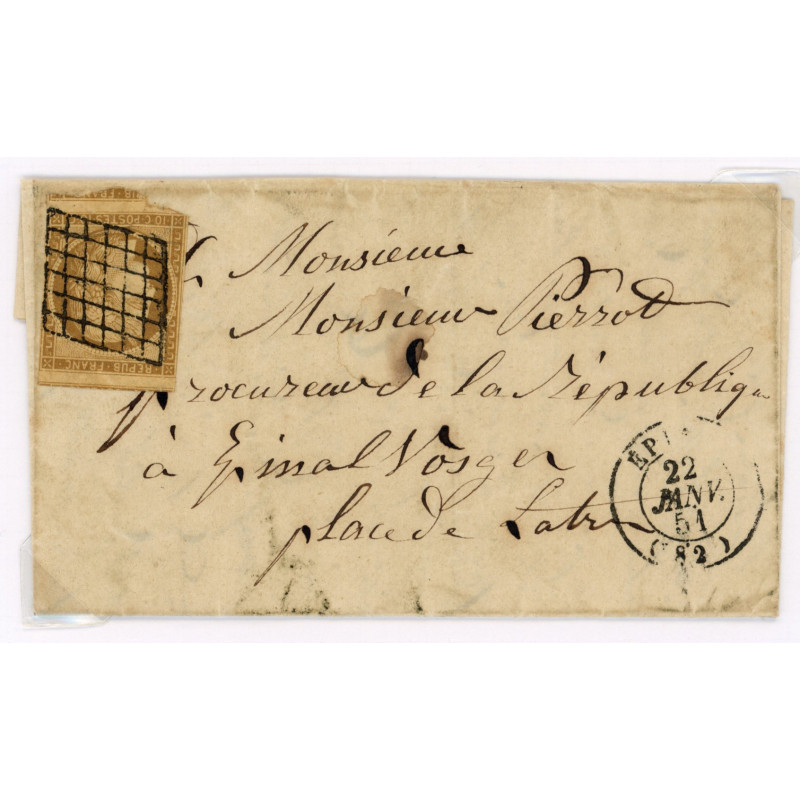 10 C POSTES 10
REPUB FRANC
Monsieur
Monsieur Pierrot
procureur de la République
à Epinal Vosges
place de
22
JANV.
51
(82)